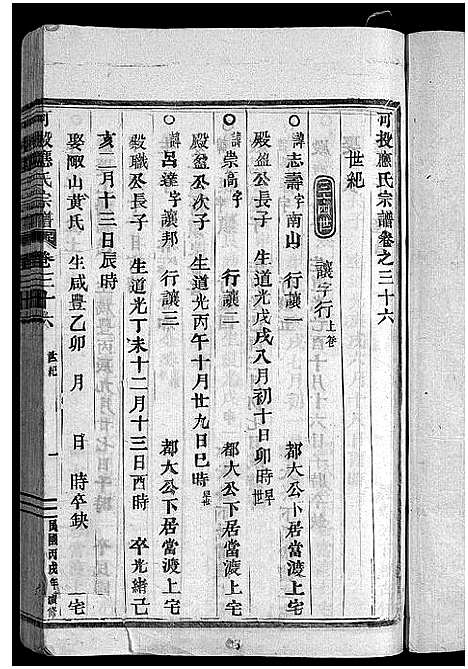 河投應氏宗譜卷之三十六
世紀
三十四世 讓字行上卷
諱志壽字南山 行讓一 都大公下居當渡上宅
殿盈公長子 生道光戊戌八月初十日卯時早世
諱崇高字 行讓二 都大公下居當渡上宅
殿盈公次子 生道光丙午十月廿九日巳時早世
諱呂達字讓邦 行讓三 都大公下居當渡上宅
殿職公長子 生道光丁未十二月十三日酉時 卒光緒己
亥二月十三日辰時
娶陬山黃氏 生咸豐乙卯 月 日 時卒缺
宅
河投應氏宗譜 卷三十六 世紀 一 民國丙戌年續修